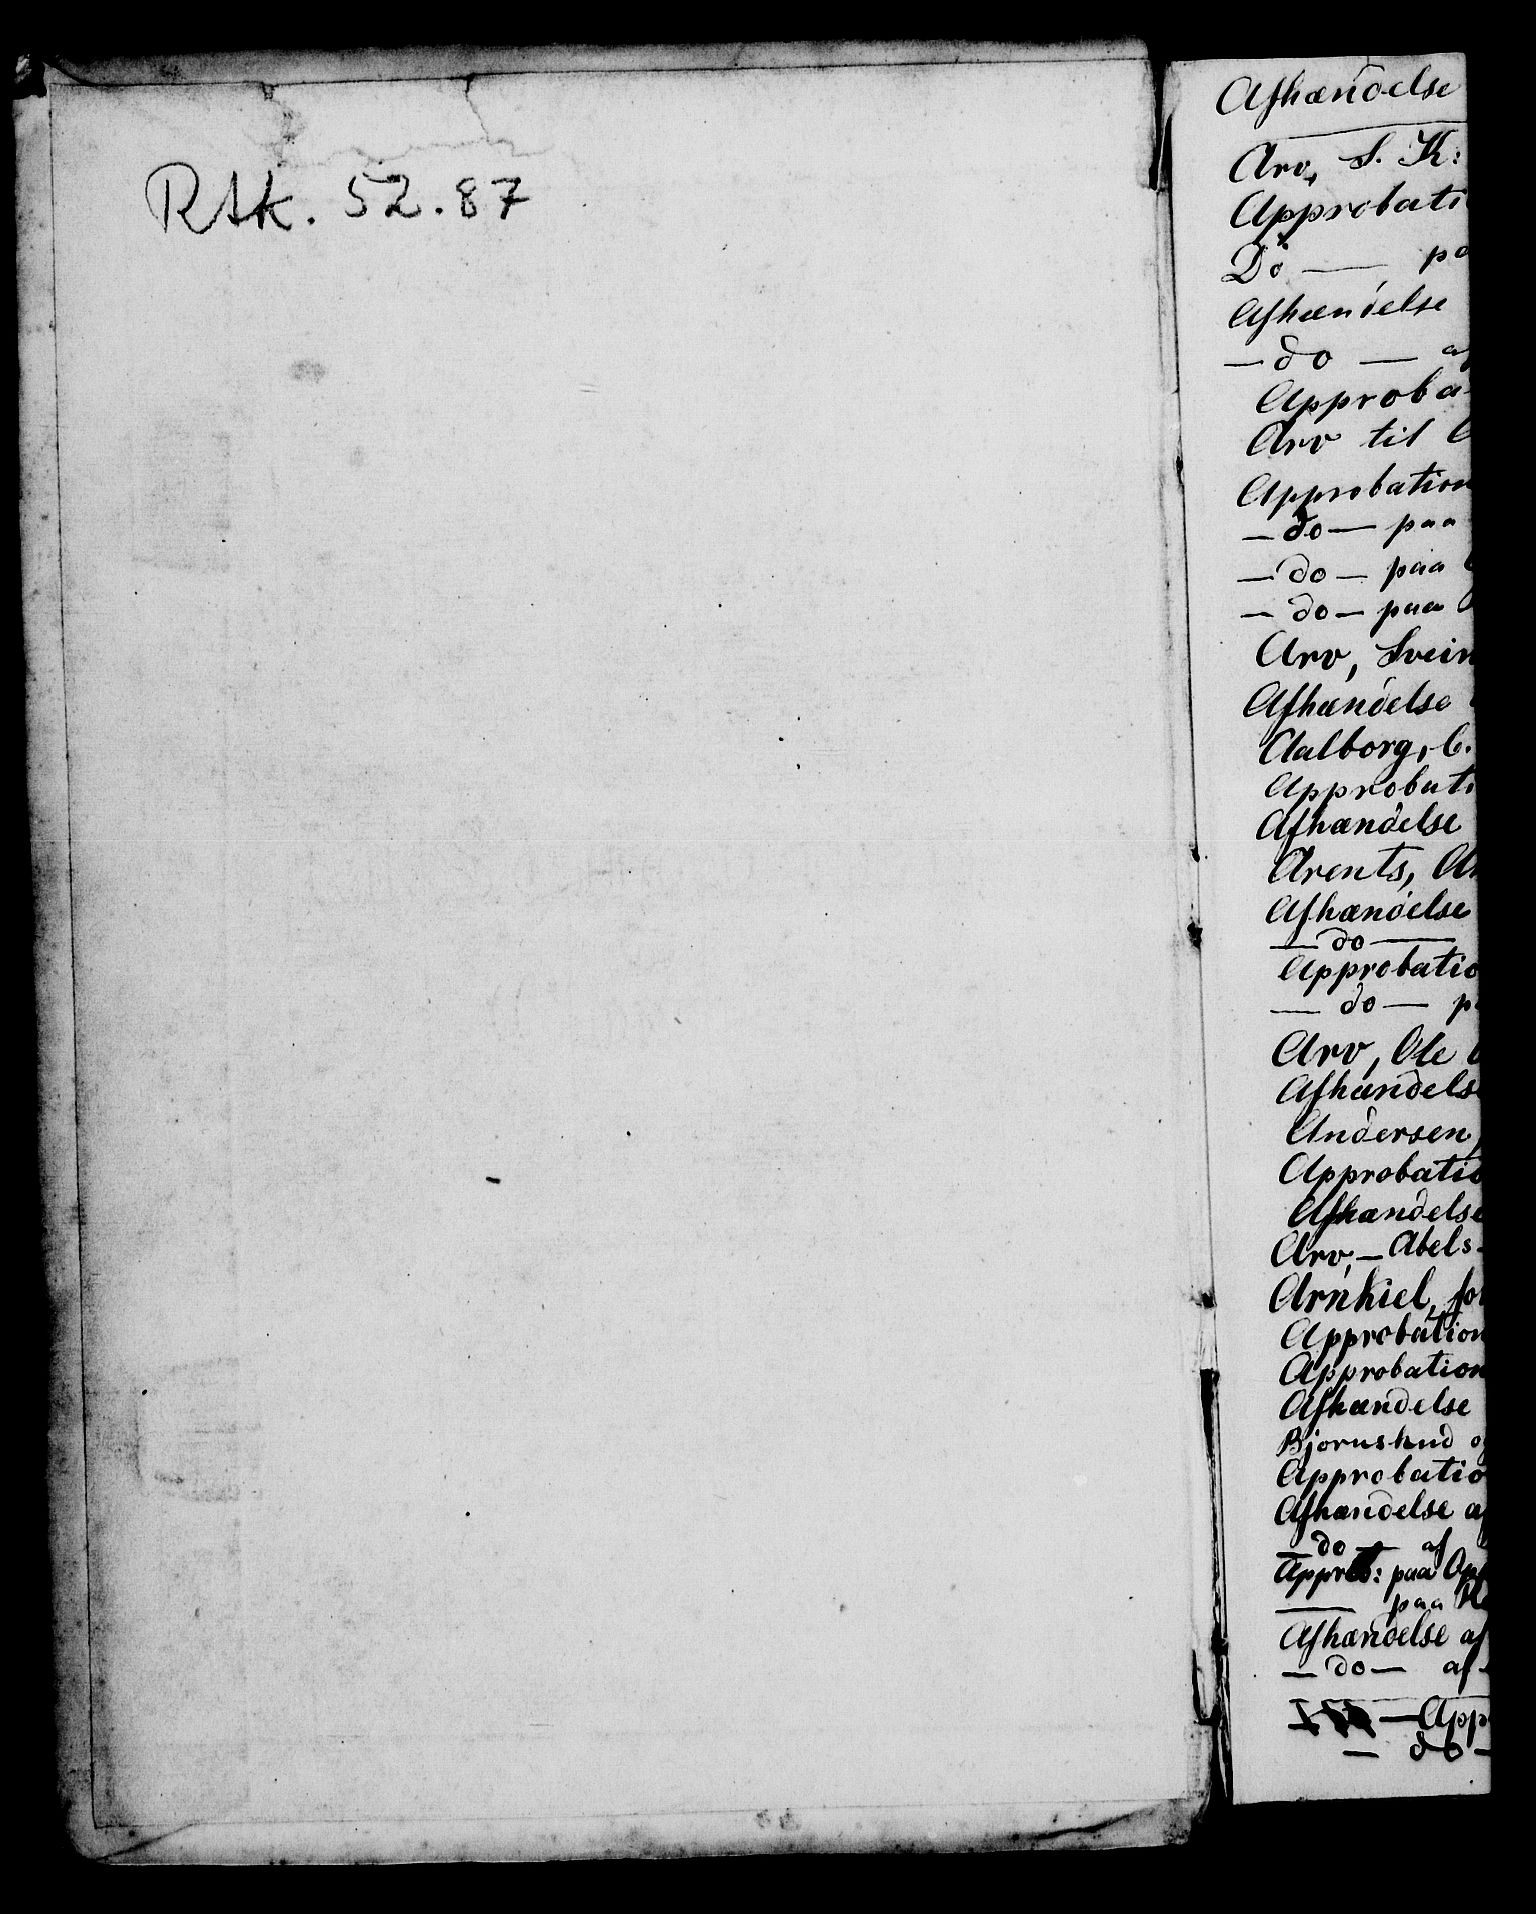 Rtk. 52.87
Afhændelse
Arv, S. K:
Approbati
Do — pa
Afhændelse
— do — af
Approba
Arv til
Approbation
— do — paa
— do — paa
— do — paa
Arv, Svein
Afhændelse
Aalborg, C.
Approbati
Afhændelse
Arents, An
Afhændelse
— do —
Approbatio
— do — p
Arv, Ole
Afhændels
Andersen,
Approbatio
Afhændelse
Arv, — Abels-
Arnkiel, for
Approbation
Approbation
Afhændelse
Bjornshud og
Approbatio
Afhændelse af
— do — af
Approb: paa Op
— paa
Afhændelse af
— do — af
— App
— do —